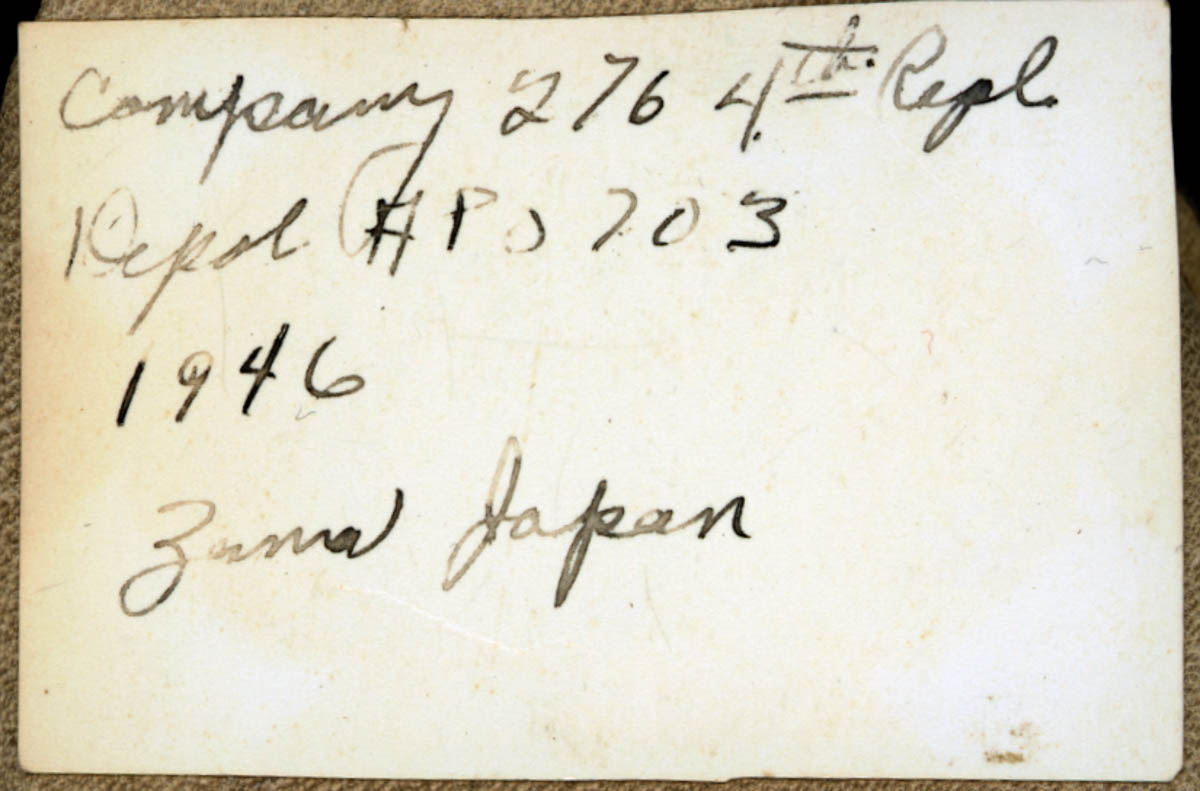 Company 276 4th. Repl.
Depot APO 703
1946
Zama Japan